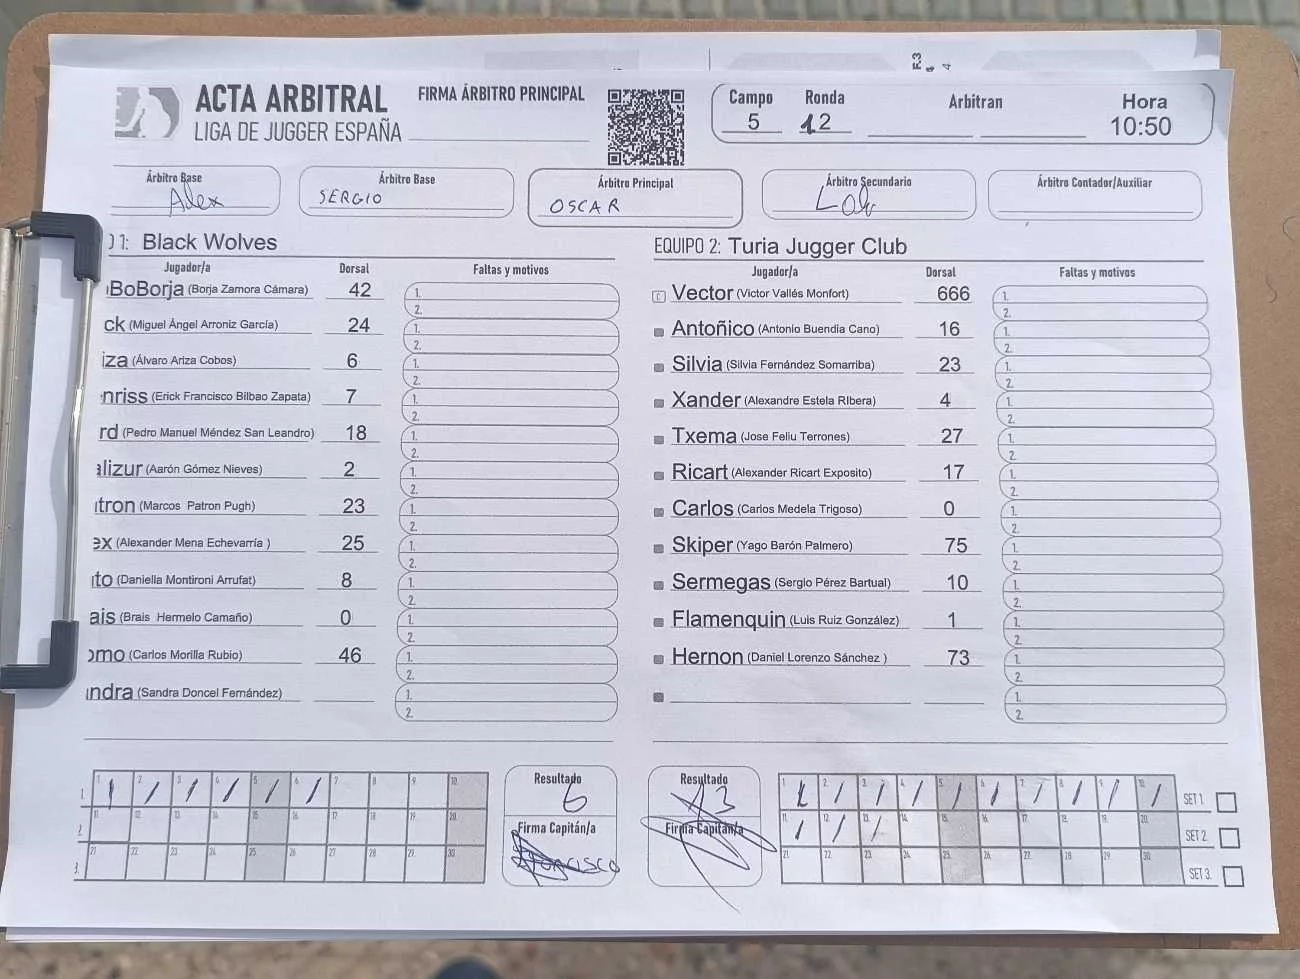 R3
4
ACTA ARBITRAL
LIGA DE JUGGER ESPAÑA
FIRMA ÁRBITRO PRINCIPAL
Campo Ronda Arbitran Hora
5 12 10:50
Árbitro Base Árbitro Base Árbitro Principal Árbitro Secundario Árbitro Contador/Auxiliar
Alex SERGIO OSCAR
O 1: Black Wolves
Jugador/a Dorsal Faltas y motivos
BoBorja (Borja Zamora Cámara) 42 1. 2.
ck (Miguel Ángel Arroniz García) 24 1. 2.
iza (Álvaro Ariza Cobos) 6 1. 2.
nriss (Erick Francisco Bilbao Zapata) 7 1. 2.
rd (Pedro Manuel Méndez San Leandro) 18 1. 2.
alizur (Aarón Gómez Nieves) 2 1. 2.
tron (Marcos Patron Pugh) 23 1. 2.
ex (Alexander Mena Echevarría ) 25 1. 2.
ito (Daniella Montironi Arrufat) 8 1. 2.
ais (Brais Hermelo Camaño) 0 1. 2.
omo (Carlos Morilla Rubio) 46 1. 2.
andra (Sandra Doncel Fernández) 1. 2.
EQUIPO 2: Turia Jugger Club
Jugador/a Dorsal Faltas y motivos
C Vector (Victor Vallés Monfort) 666 1. 2.
Antoñico (Antonio Buendia Cano) 16 1. 2.
Silvia (Silvia Fernández Somarriba) 23 1. 2.
Xander (Alexandre Estela RIbera) 4 1. 2.
Txema (Jose Feliu Terrones) 27 1. 2.
Ricart (Alexander Ricart Exposito) 17 1. 2.
Carlos (Carlos Medela Trigoso) 0 1. 2.
Skiper (Yago Barón Palmero) 75 1. 2.
Sermegas (Sergio Pérez Bartual) 10 1. 2.
Flamenquin (Luis Ruiz González) 1 1. 2.
Hernon (Daniel Lorenzo Sánchez ) 73 1. 2.
1. 2.
1. 1 2 3 4 5 6 7 8 9 10
2. 11 12 13 14 15 16 17 18 19 20
3. 21 22 23 24 25 26 27 28 29 30
Resultado
6
Firma Capitán/a
Resultado
13
Firma Capitán/a
1 2 3 4 5 6 7 8 9 10 SET 1.
11 12 13 14 15 16 17 18 19 20 SET 2.
21 22 23 24 25 26 27 28 29 30 SET 3.